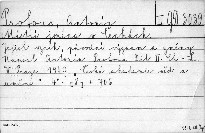 Profous, Antonín
Místní jména v Čechách
Jejich vznik, původní význam a změny
Napsal Antonín Profous. Díl II. Ch - L
V Praze 1949. Česká akademie věd a
umění. 4°.